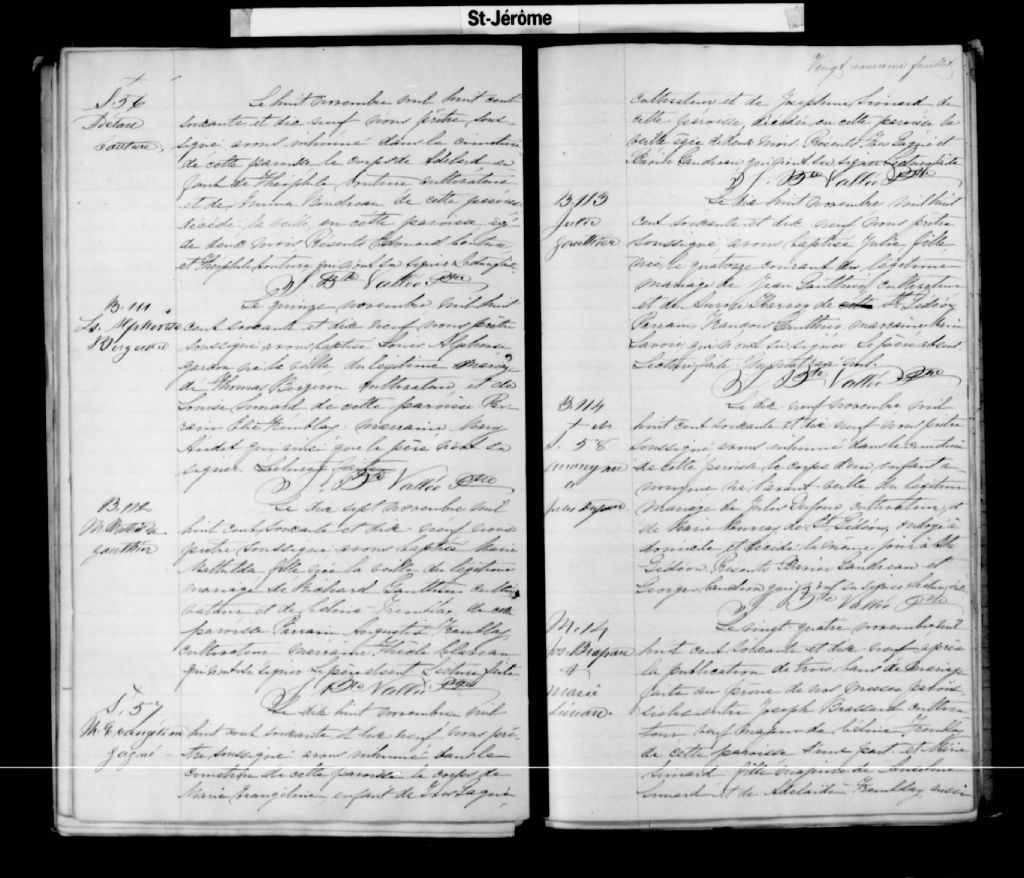 St-Jérôme
S. 56
Délare
Couture.
Le huit novembre mil huit cent
soixante et dix neuf nous prêtre sous-
signé avons inhumé dans le cimetière
de cette paroisse le corps de Adélard en
fant de Théophile Couture cultivateur
et de Boudreau de cette paroisse
décédé la veille en cette paroisse âgé
de deux mois. Présents Edmond Couture
et Théophile Couture qui n'ont su signer Lecture faite
J. Bte Vallée Ptre
B. 111
Ls. Alphonse
Bergeron
Le quinze novembre mil huit
cent soixante et dix neuf nous prêtre
soussigné avons baptisé Louis Alphonse
garçon né la veille du légitime mariage
de Thomas Bergeron cultivateur et de
Louise Simard de cette paroisse Par-
rain Tremblay marraine Mary
Audet qui ainsi que le père n'ont su
signer. Lecture faite
J. Bte Vallée Ptre
B. 112
M. Mathilda
Gauthier
Le dix sept novembre mil
huit cent soixante et dix neuf nous
prêtre soussigné avons baptisé Marie
Mathilda fille née la veille du légitime
mariage de Richard Gauthier culti-
vateur et de Tremblay de cette
paroisse Parrain Augustin Tremblay
cultivateur marraine Thècle
qui n'ont su signer Le père absent Lecture faite
J. Bte Vallée Ptre
S. 57
M. Evangéline
Gagné
Le dix huit novembre mil
huit cent soixante et dix neuf nous prê-
tre soussigné avons inhumé dans le
cimetière de cette paroisse le corps de
Marie Evangéline enfant de Gagné,
Vingt neuvième feuillet
cultivateur et de Joséphine Simard de
cette paroisse, décédée en cette paroisse la
veille âgée de deux mois. Présents Gagné et
Boudreau qui n'ont su signer Lecture faite
J. Bte Vallée Ptre
B. 113
Julie
Gauthier
Le dix huit novembre mil huit
cent soixante et dix neuf nous prêtre
soussigné, avons baptisé Julie fille
née le quatorze courant du légitime
mariage de Jean Gauthier cultivateur
et de de St. Gédéon
Parrain François Gauthier marraine
Lavoie qui n'ont su signer Le père absent
Lecture faite Un mot rayé nul.
J. Bte Vallée Ptre
B. 114
+ et
S. 58
anonyme
a
Jules Dufour
Le dix neuf novembre mil
huit cent soixante et dix neuf nous prêtre
soussigné avons inhumé dans le cimetière
de cette paroisse le corps d'un enfant a-
nonyme né l'avant-veille du légitime
mariage de Jules Dufour cultivateur, et
de Marie Murray de St. Gédéon, ondoyé à
domicile et décédé le même jour à St.
Gédéon. Présents Boudreau et
Georges Gaudreau qui n'ont su signer Lecture faite
J. Bte Vallée Ptre
M. 14
Jos. Brassard
&
Marie
Simard.
Le vingt quatre novembre mil
huit cent soixante et dix neuf après
la publication de trois bans de mariage
faite au prône de nos messes parois-
siales entre Joseph Brassard cultiva-
teur, veuf majeur de Tremblay
de cette paroisse d'une part. et Marie
Simard fille majeure de
Simard et de Adélaïde Tremblay aussi